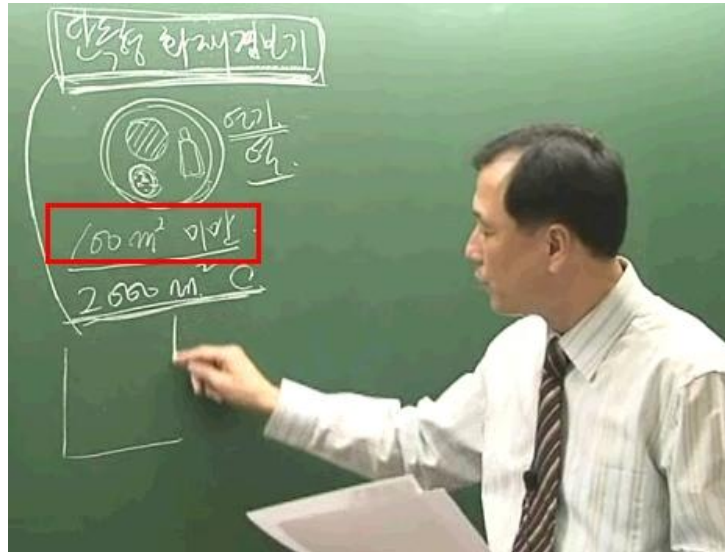 단독형 화재경보기
연기
열
100m² 미만
2000m²